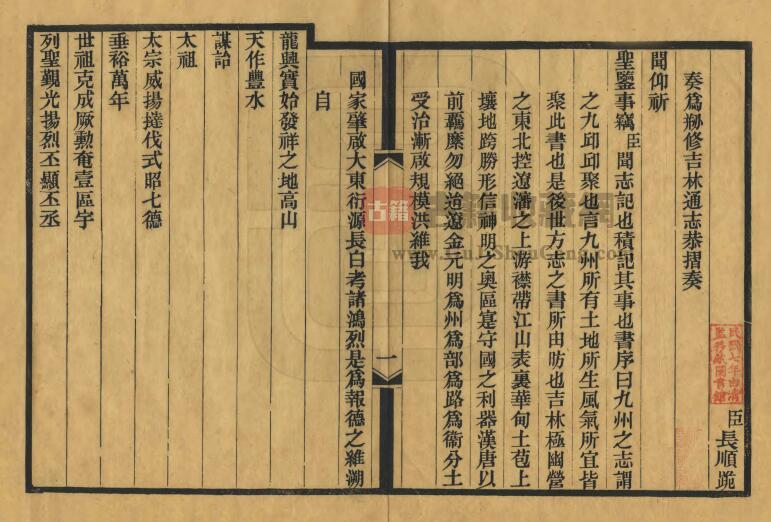 臣長順跪
奏為刱修吉林通志恭摺奏
聞仰祈
聖鑒事竊臣聞志記也積記其事也書序曰九州之志謂
之九邱邱聚也言九州所有土地所生風氣所宜皆
聚此書也是後世方志之書所由昉也吉林極幽營
之東北控遼瀋之上游襟帶江山表裏華甸土苞上
壤地跨勝形信神明之奧區寔守國之利器漢唐以
前羈縻勿絕迨遼金元明為州為部為路為衞分土
受治漸啟規模洪維我
國家肇啟大東衍源長白考諸鴻烈是為報德之維溯
自
龍興實始發祥之地高山
天作豐水
謀詒
太祖
太宗威揚撻伐式昭七德
垂裕萬年
世祖克成厥勳奄壹區宇
列聖覲光揚烈丕顯丕丞
一
古籍